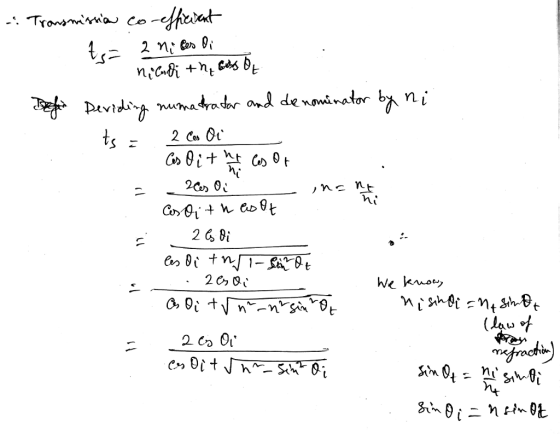 ∴ Transmission co-efficient
t_s = 2 n_i cos θ_i / (n_i cos θ_i + n_t cos θ_t)
Deviding numadrator and denominator by n_i
t_s = 2 cos θ_i / (cos θ_i + (n_t/n_i) cos θ_t)
= 2 cos θ_i / (cos θ_i + n cos θ_t) , n = n_t/n_i
= 2 cos θ_i / (cos θ_i + n √(1 - sin² θ_t)) ∴
= 2 cos θ_i / (cos θ_i + √(n² - n² sin² θ_t))
= 2 cos θ_i / (cos θ_i + √(n² - sin² θ_i))
We know,
n_i sin θ_i = n_t sin θ_t
(law of
refraction)
sin θ_t = (n_i/n_t) sin θ_i
sin θ_i = n sin θ_t